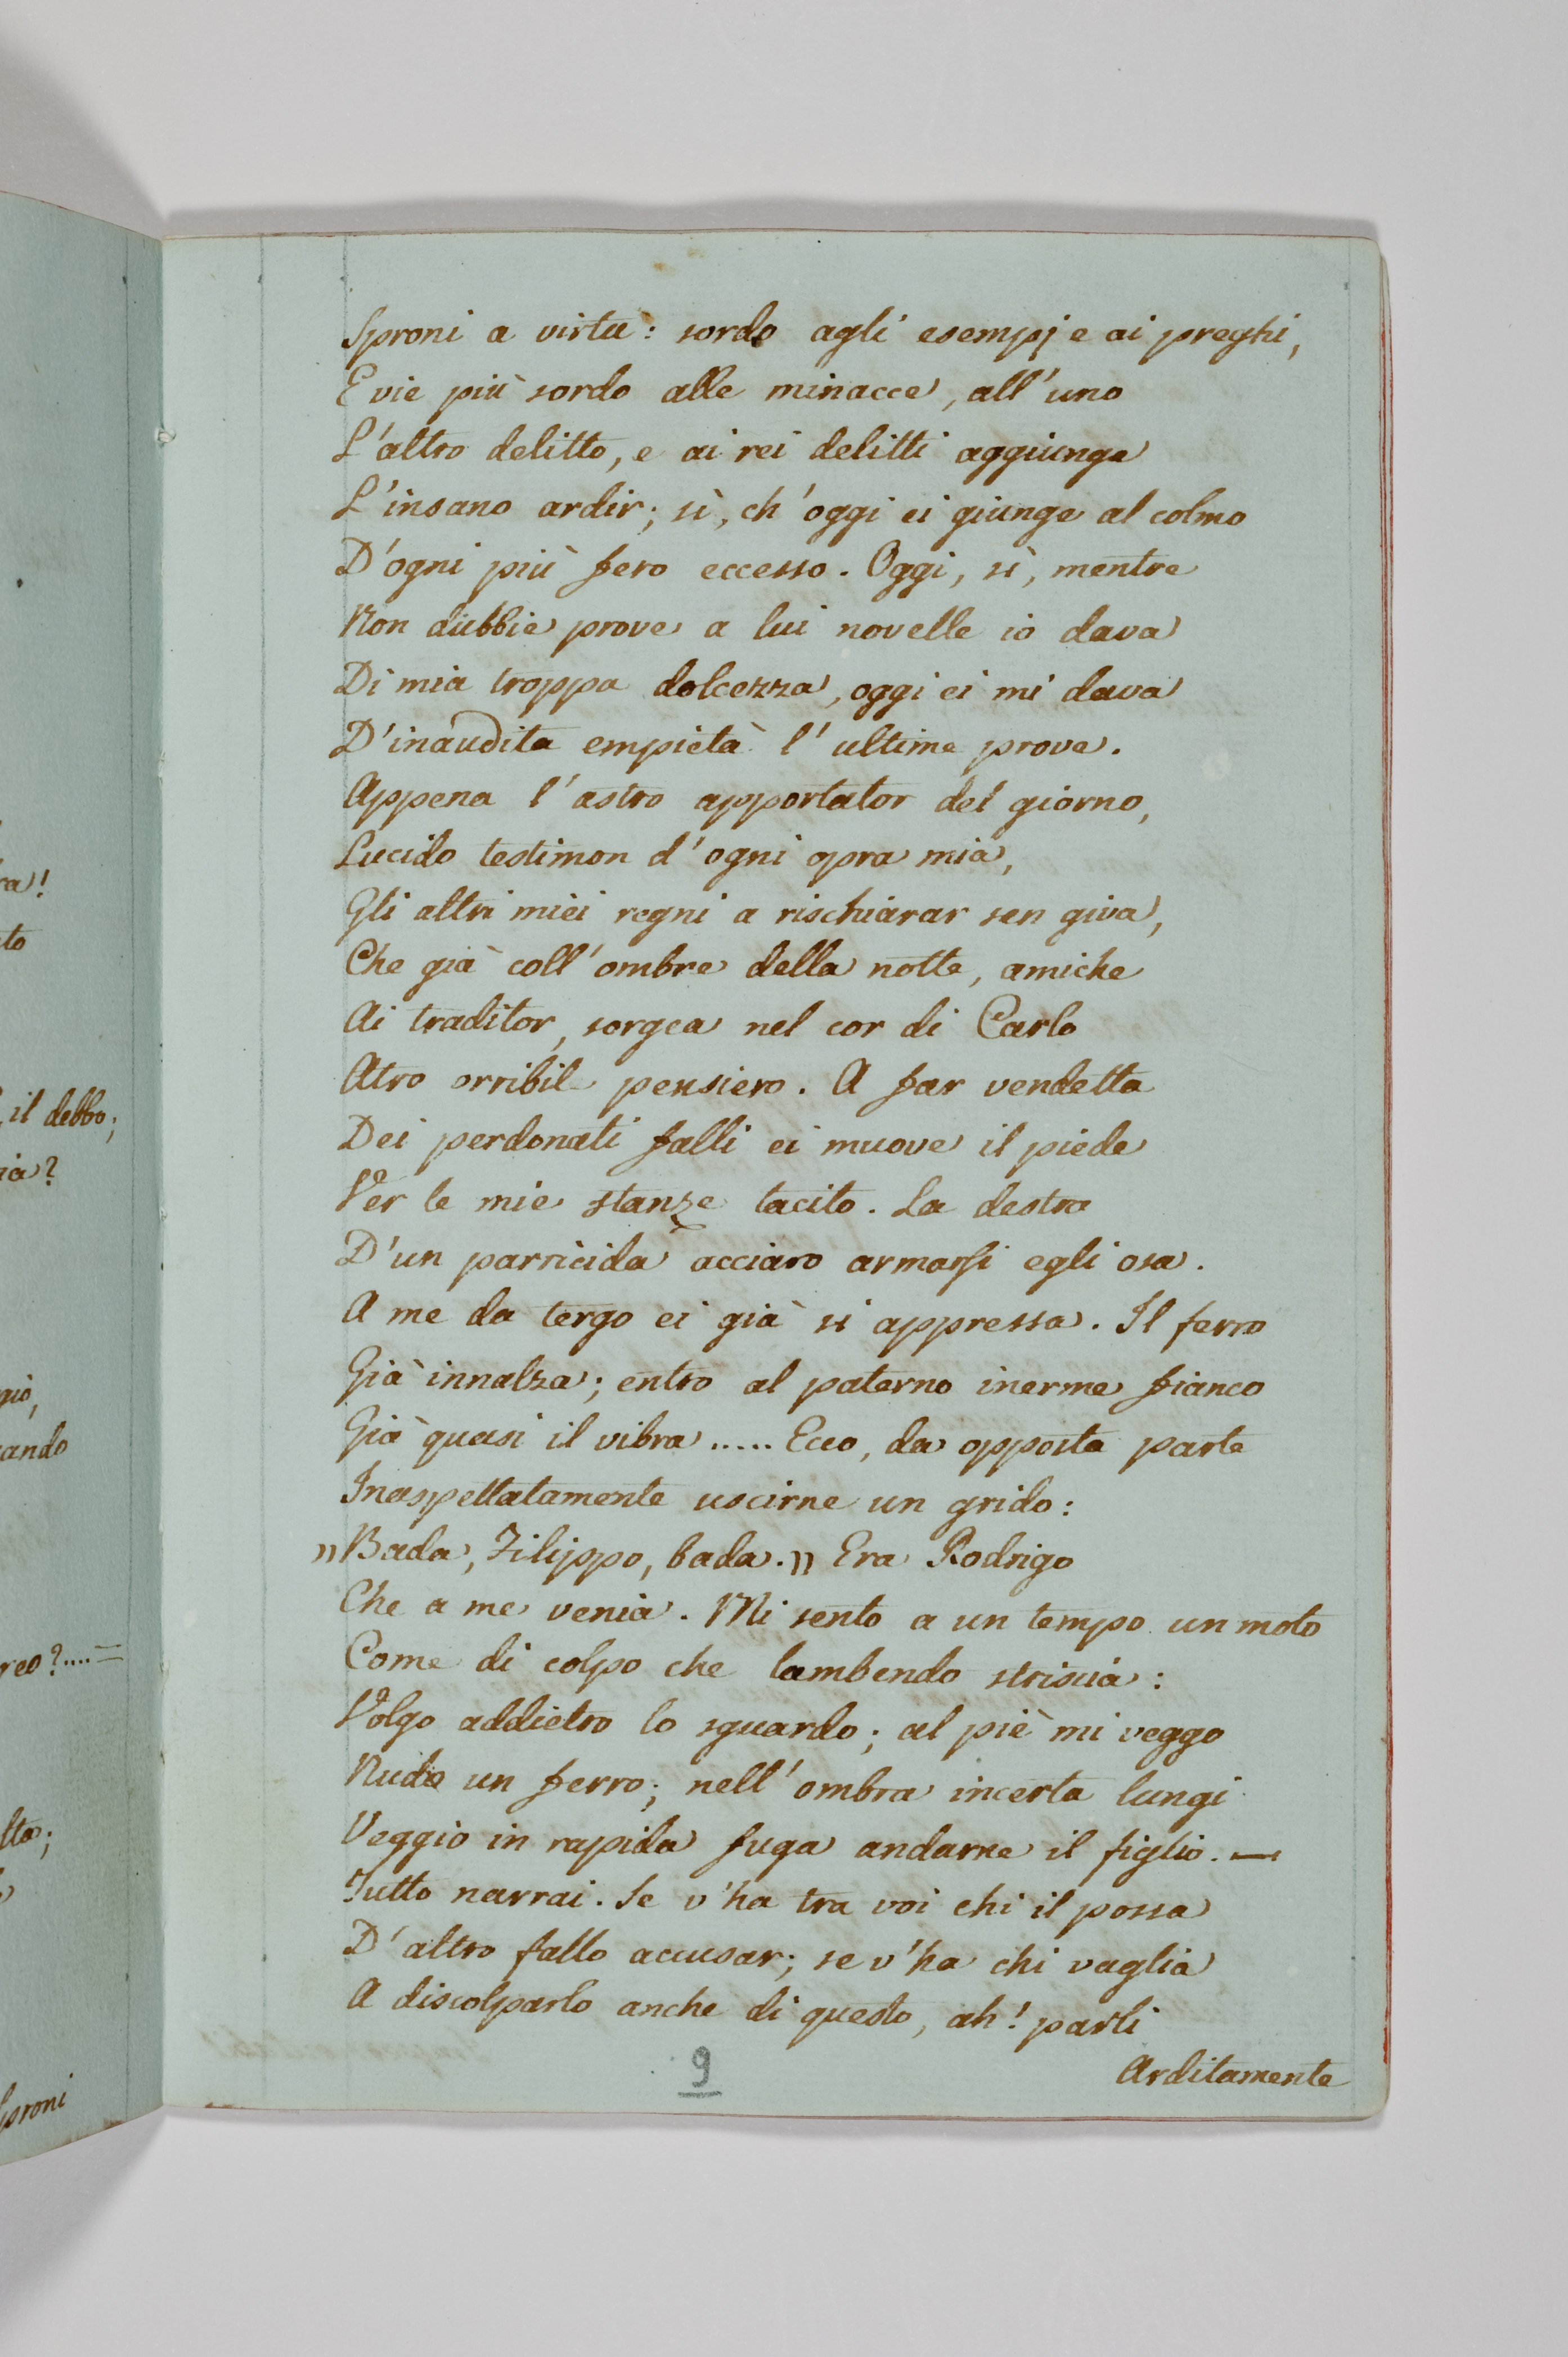 ra!
to
il debbo;
ia?
gio,
ando
reo?....=
lto;
Sproni
Sproni a virtù: sordo agli esempj e ai preghi,
E vie più sordo alle minacce, all'uno
L'altro delitto, e ai rei delitti aggiunge
L'insano ardir; sì, ch'oggi ei giunge al colmo
D'ogni più fero eccesso. Oggi, sì, mentre
Non dubbie prove a lui novelle io dava
Di mia troppa dolcezza, oggi ei mi dava
D'inaudita empietà l'ultime prove.
Appena l'astro apportator del giorno,
Lucido testimon d'ogni opra mia,
Gli altri miei regni a rischiarar sen giva,
Che già coll'ombre della notte, amiche
Ai traditor, sorgea nel cor di Carlo
Atro orribil pensiero. A far vendetta
Dei perdonati falli ei muove il piede
Ver le mie stanze tacito. La destra
D'un parricida acciaro armarsi egli osa.
A me da tergo ei già si appressa. Il ferro
Già innalza; entro al paterno inerme fianco
Già quasi il vibra..... Ecco, da opposta parte
Inaspettatamente uscirne un grido:
"Bada, Filippo, bada." Era Rodrigo
Che a me venia. Mi sento a un tempo un moto
Come di colpo che lambendo striscia:
Volgo addietro lo sguardo; al piè mi veggo
Nudo un ferro; nell'ombra incerta lungi
Veggio in rapida fuga andarne il figlio. —
Tutto narrai. Se v'ha tra voi chi il possa
D'altro fallo accusar; se v'ha chi vaglia
A discolparlo anche di questo, ah! parli
Arditamente
9